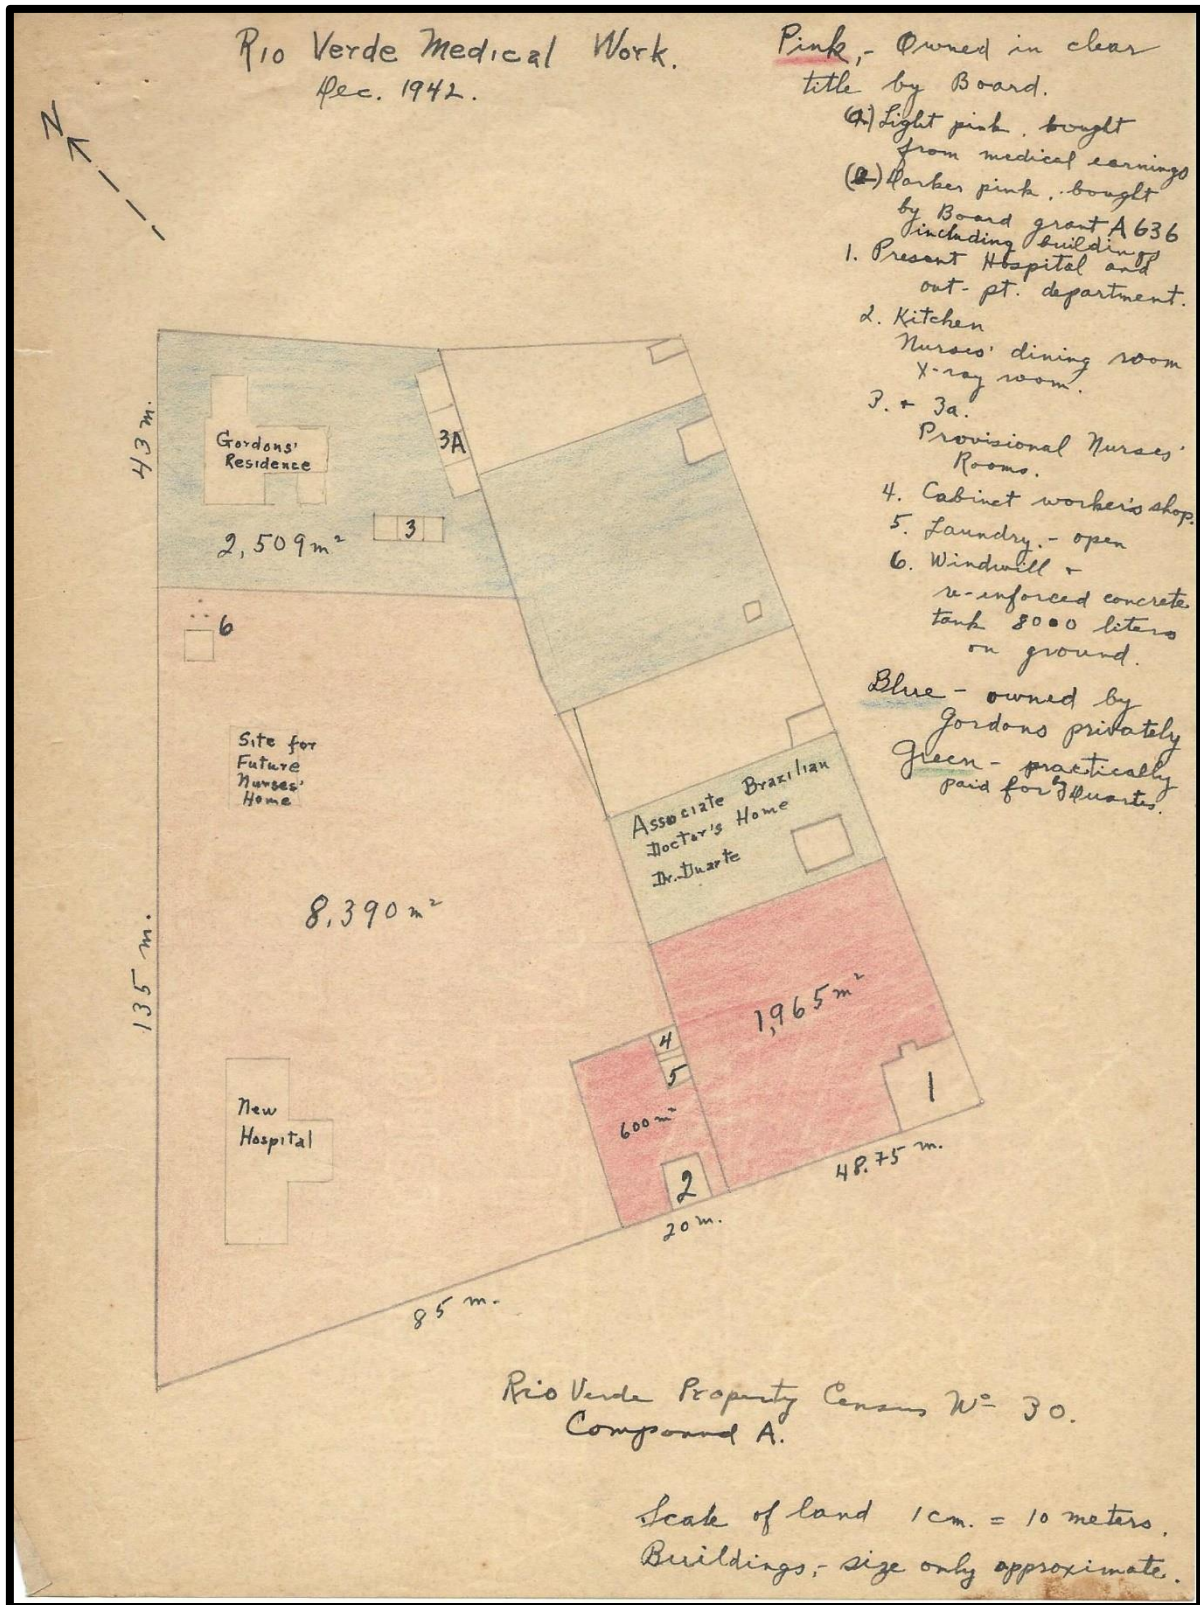 Rio Verde Medical Work.
Dec. 1942.
N
Pink,- Owned in clear
title by Board.
Light pink, bought
from medical earnings
Darker pink, bought
by Board grant A 636
including buildings
1. Present Hospital and
out-pt. department.
2. Kitchen
Nurses' dining room
X-ray room.
3. + 3a.
Provisional Nurses'
Rooms.
4. Cabinet worker's shop.
5. Laundry.- open
6. Windmill +
re-enforced concrete
tank 8000 liters
on ground.
Blue - owned by
Gordons privately
Green - practically
paid for by Duartes.
43 m.
Gordons'
Residence
3A
3
2,509 m²
6
Site for
Future
Nurses'
Home
Associate Brazilian
Doctor's Home
Dr. Duarte
8,390 m²
135 m.
1,965 m²
4
5
600 m²
1
2
New
Hospital
48.75 m.
20 m.
85 m.
Rio Verde Property Census Nº 30.
Compound A.
Scale of land 1 cm. = 10 meters.
Buildings,- size only approximate.